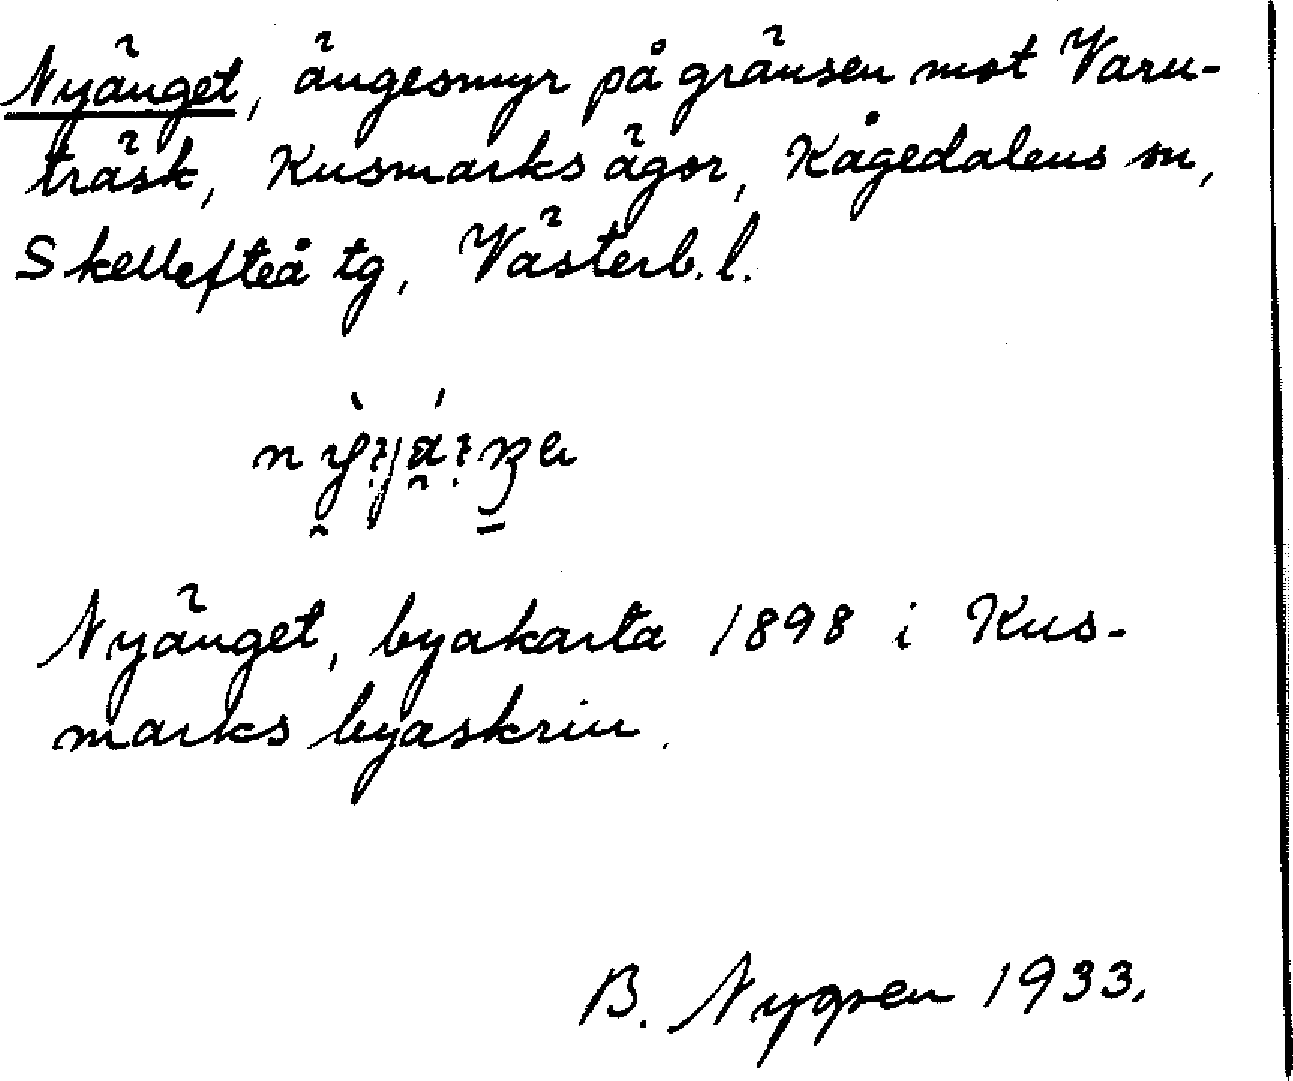 Nyänget, ängesmyr på gränsen mot Varu-
träsk, Kusmarks ägor, Kågedalens sn,
Skellefteå tg, Västerb. l.
Nyänget, byakarta 1898 i Kus-
marks byaskrin.
B. Nygren 1933.